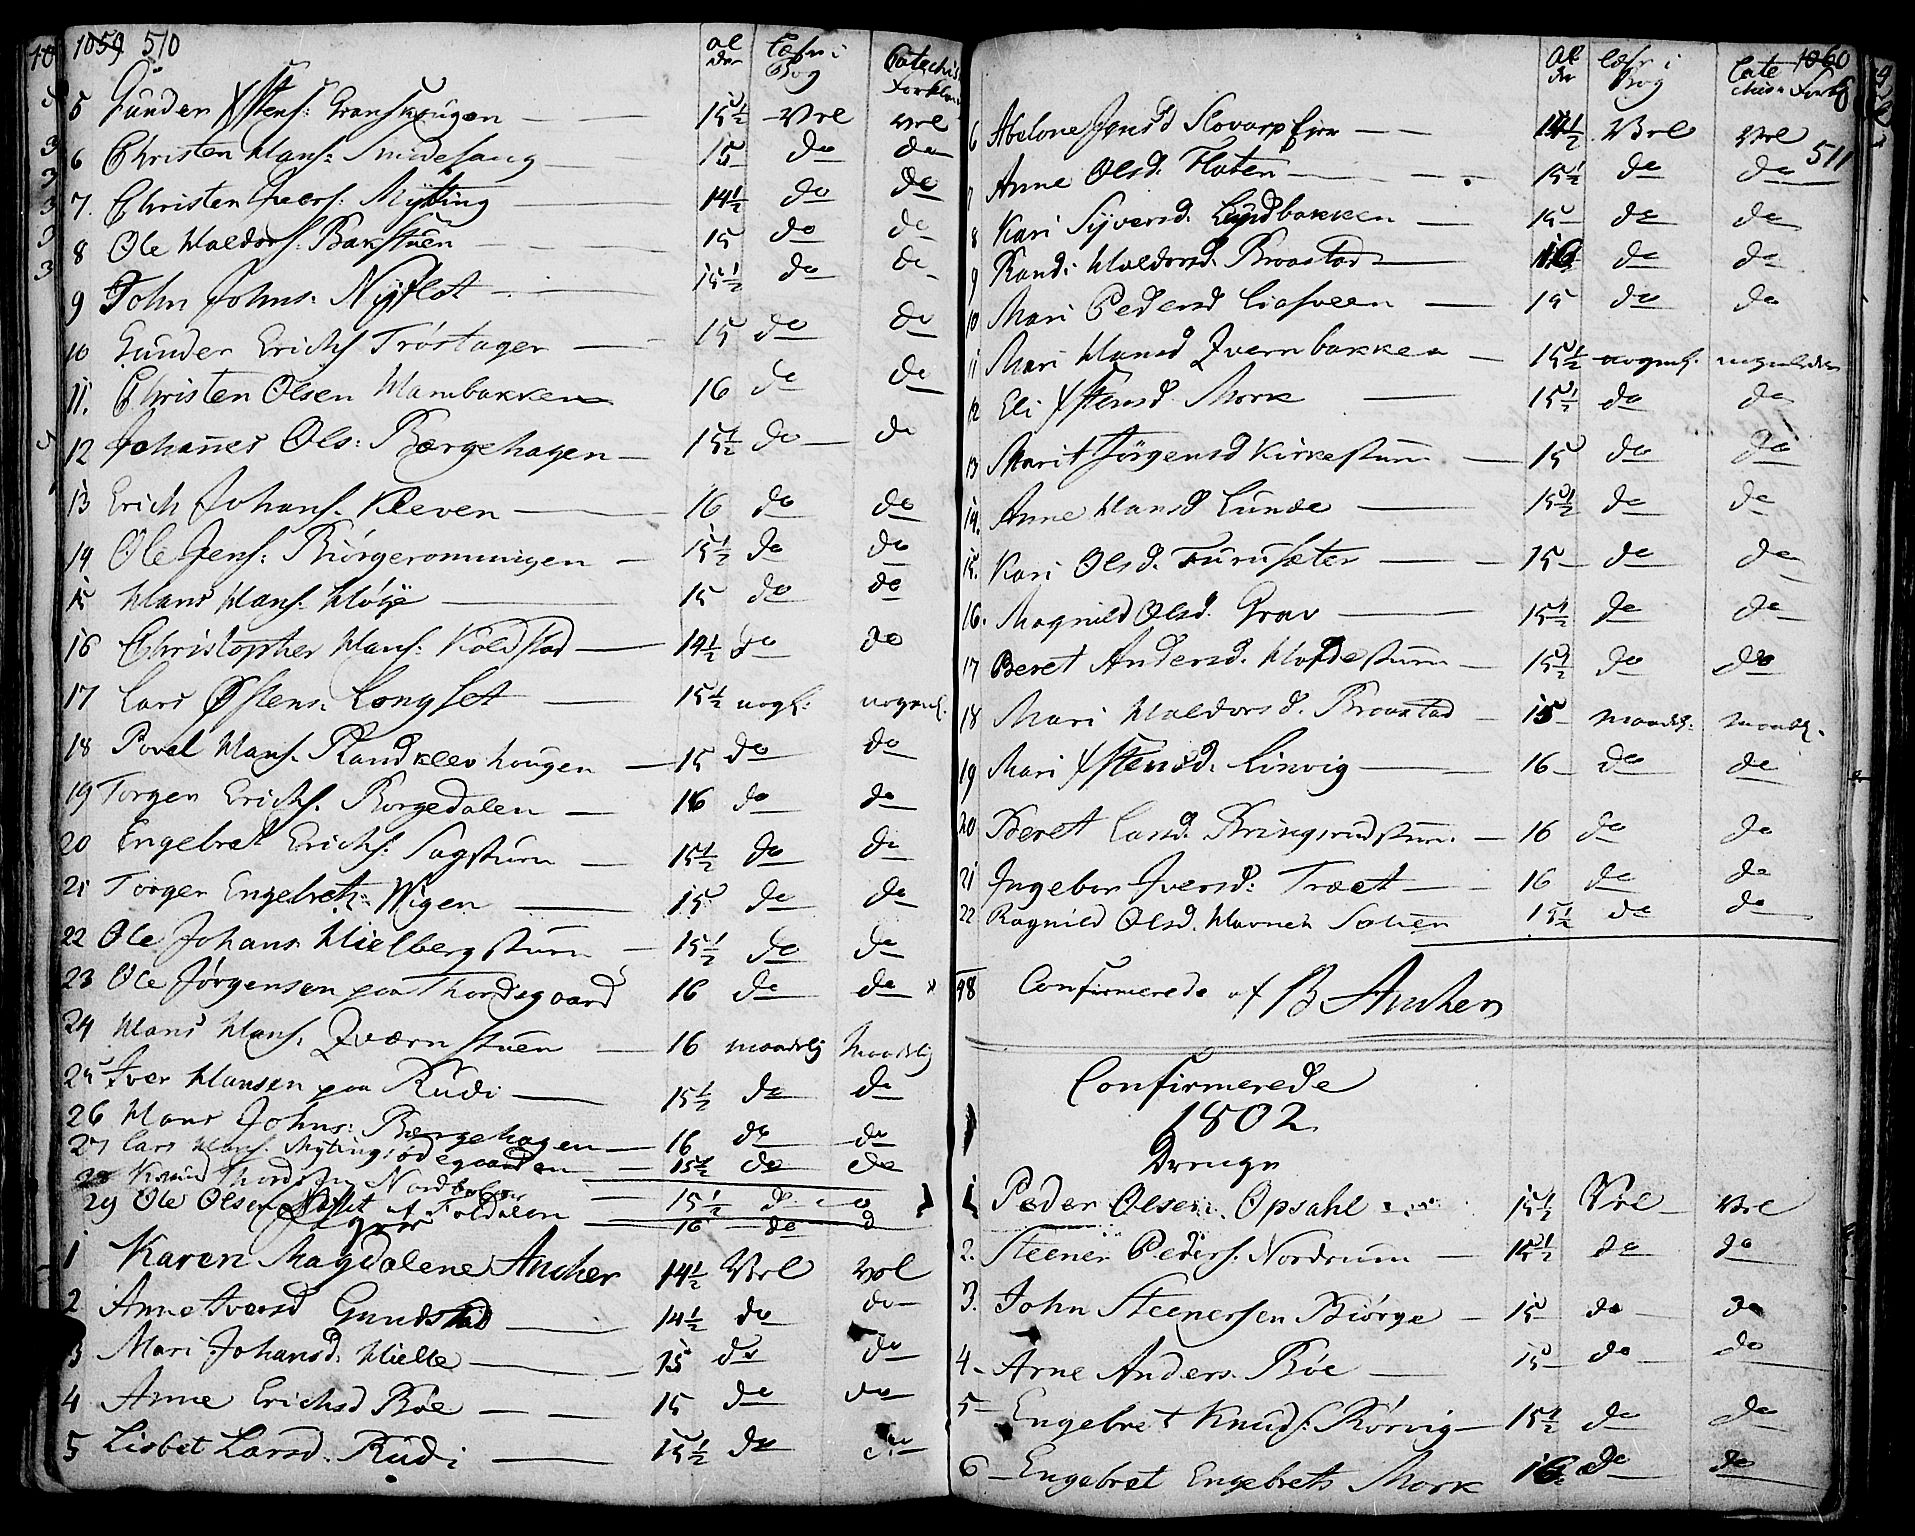 1059 510
Al der Læse i Bog Catechis: Forklar
5 Gunder Ystens: Granskougen 15 1/2 Vel vel
6 Christen Hans: Smidesang 15 do do
7. Christen Peders: Mÿting 14 1/2 do do
8 Ole Haldors: Bakstuen 15 do do
9 John Johns: Nÿflot 15 1/2 do do
10 Gunder Erichs Tróstager 15 do do
11. Christen Olsen Hambakken 16 do do
12 Johannes Ols: Bergehagen 15 1/2 do do
13 Erich Johans. Kleven 16 do do
14 Ole Jens: Biórgeromuigen 15 1/2 do do
15 Hans Hans: Hóÿe 15 do do
16 Christopher Hans: Koldstad 14 1/2 do do
17 Lars Østens: Longset 15 1/2 nogl: nogenl.
18 Povel Hans. Randklevhougen 15 do do
19 Torger Erichs. Borgedalen 16 do do
20 Engebret Erichs: Sagstuen 15 1/2 do do
21 Torger Engebrets: Wigen 15 do do
22 Ole Johans: Hielbergstuen 15 1/2 do do
23 Ole Jórgensen paa Thordsgaard 16 do do
24 Hans Hans. Qværnstuen 16 maadelig Maadelig
25 Iver Hansen paa Rudi 15 1/2 do do
26 Hans Johns: Bergehagen 16 do do
27 Lars Hans: Mytingsødegaarden 15 1/2 do do
28 Knud Thords: Nord 15 1/2 do do
29 Ole Olsen af Foldalen 16 do d
1 Karen Magdalene Ancher 14 1/2 Vel vel
2 Anne Iversd Gundstad 14 1/2 do do
3 Mari Johansd. Hielle 15 do do
4 Anne Erichsd Bóe 15 do do
5 Lisbet Larsd. Rudi 15 1/2 do do
1060
511
Al der Læse i Bog Cate chis: Forkl
6 Abelone Jensd Slovarp 14 1/2 Vel vel
7 Anne Olsd. Floten 15 1/2 do do
8 Kari Syversd. Lundbakken 15 do do
9 Randi Haldorsd. Braastad 16 do do
10 Mari Pedersd Liasveen 15 do do
11 Mari Hansd Qvernbakken 15 1/2 nogenl. nogenledes
12 Eli Ystensd. Mork 15 1/2 do do
13 Marit Jörgensd Kirkestuen 15 do do
14. Anne Hansd Lunde 15 1/2 do do
15. Kari Olsd. Furusæter 15 do do
16. Magnild Olsd. Grav 15 1/2 do do
17 Beret Andersd. Hofdestuen 15 1/2 do do
18 Mari Haldorsd. Braastad 15 maadel: maadl.
19 Mari Ystensd. Linvig 16 do do
20 Berett Larsd. Bringsrudstuen 16 do do
21 Ingebor Iversd: Træet 16 do do
22 Ragnild Olsd. Havnen Solien 15 1/2 do do
48 Confirmerede af B Ancher
Confirmerede
1802
Drenge
1. Peder Olsen. Opsahl 15 1/2 Vel vel
2. Steener Peders: Nordrum 15 1/2 do do
3. John Steenersen Biórge 15 do do
4. Arne Anders: Bóe 15 do do
5 Engebret Knuds: Rórvig 15 1/2 do do
6 Engebret Engebrets Mork 16 do do